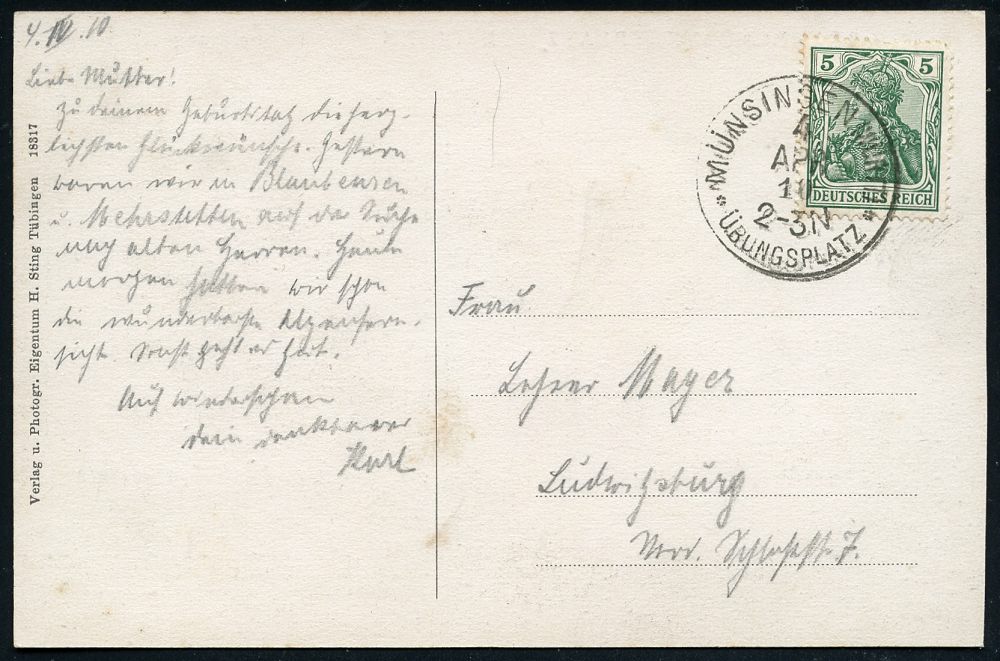 4. IV. 10
Liebe Mutter!
Zu deinem Geburtstag die herz-
lichsten Glückwünsche. Gestern
waren wir in Blaubeuren
u. Mehrstetten auf der Suche
nach alten Herren. Heute
morgen hatten wir schon
die wunderbarste Alpenfern-
sicht. Sonst geht es gut.
Auf Wiedersehen
dein dankbarer
Karl
Verlag u. Photogr. Eigentum H. Sting Tübingen 18317
5 5
DEUTSCHES REICH
MÜNSINGEN
4
APR
10
2-3N
ÜBUNGSPLATZ
Frau
Lehrer Mayer
Ludwigsburg
Vord. Schloßstr. 7.